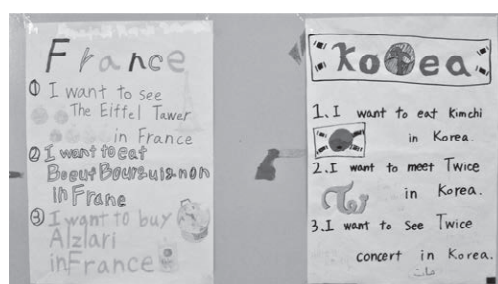 France
① I want to see
The Eiffel Tawer
in France
② I want to eat
Boeuf Bourguignon
in Frane
③ I want to buy
Alzlari
in France
Korea
1. I want to eat Kimchi
in Korea.
2. I want to meet Twice
in Korea.
3. I want to see Twice
concert in Korea.